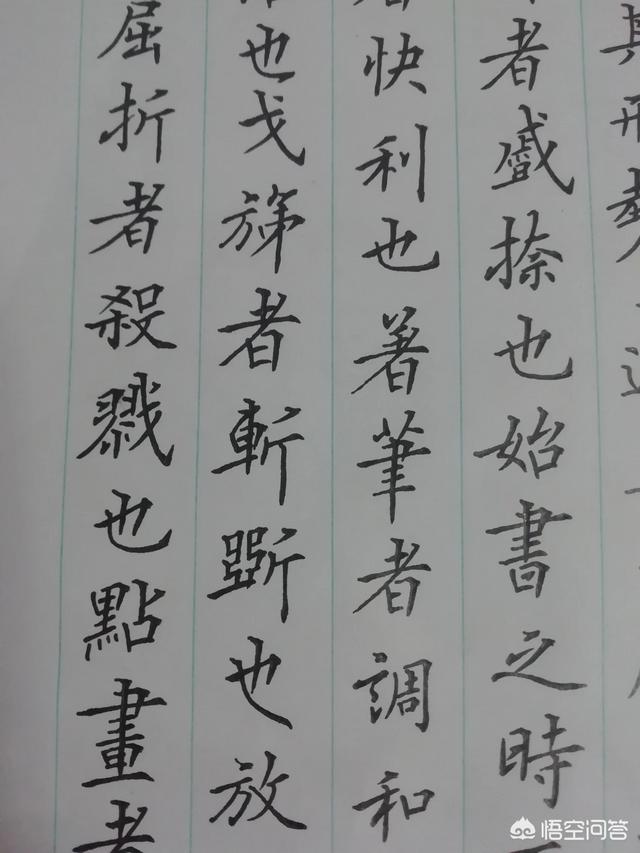 其形
者捺也始書之時
者快利也著筆者調和
也戈者斬斷也放
屈折者殺戮也點畫者
悟空问答